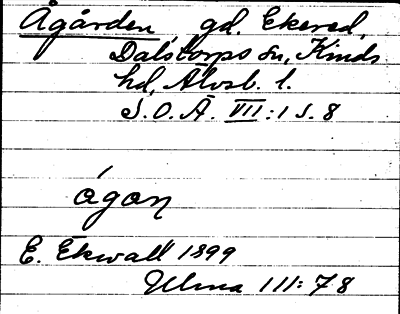 Ågården gd. Ekered,
Dalstorps sn, Kinds
hd, Älvsb. l.
S.O.Ä. VII:1 s. 8
ágaṇ
E. Ekwall 1899
Ulma 111:78